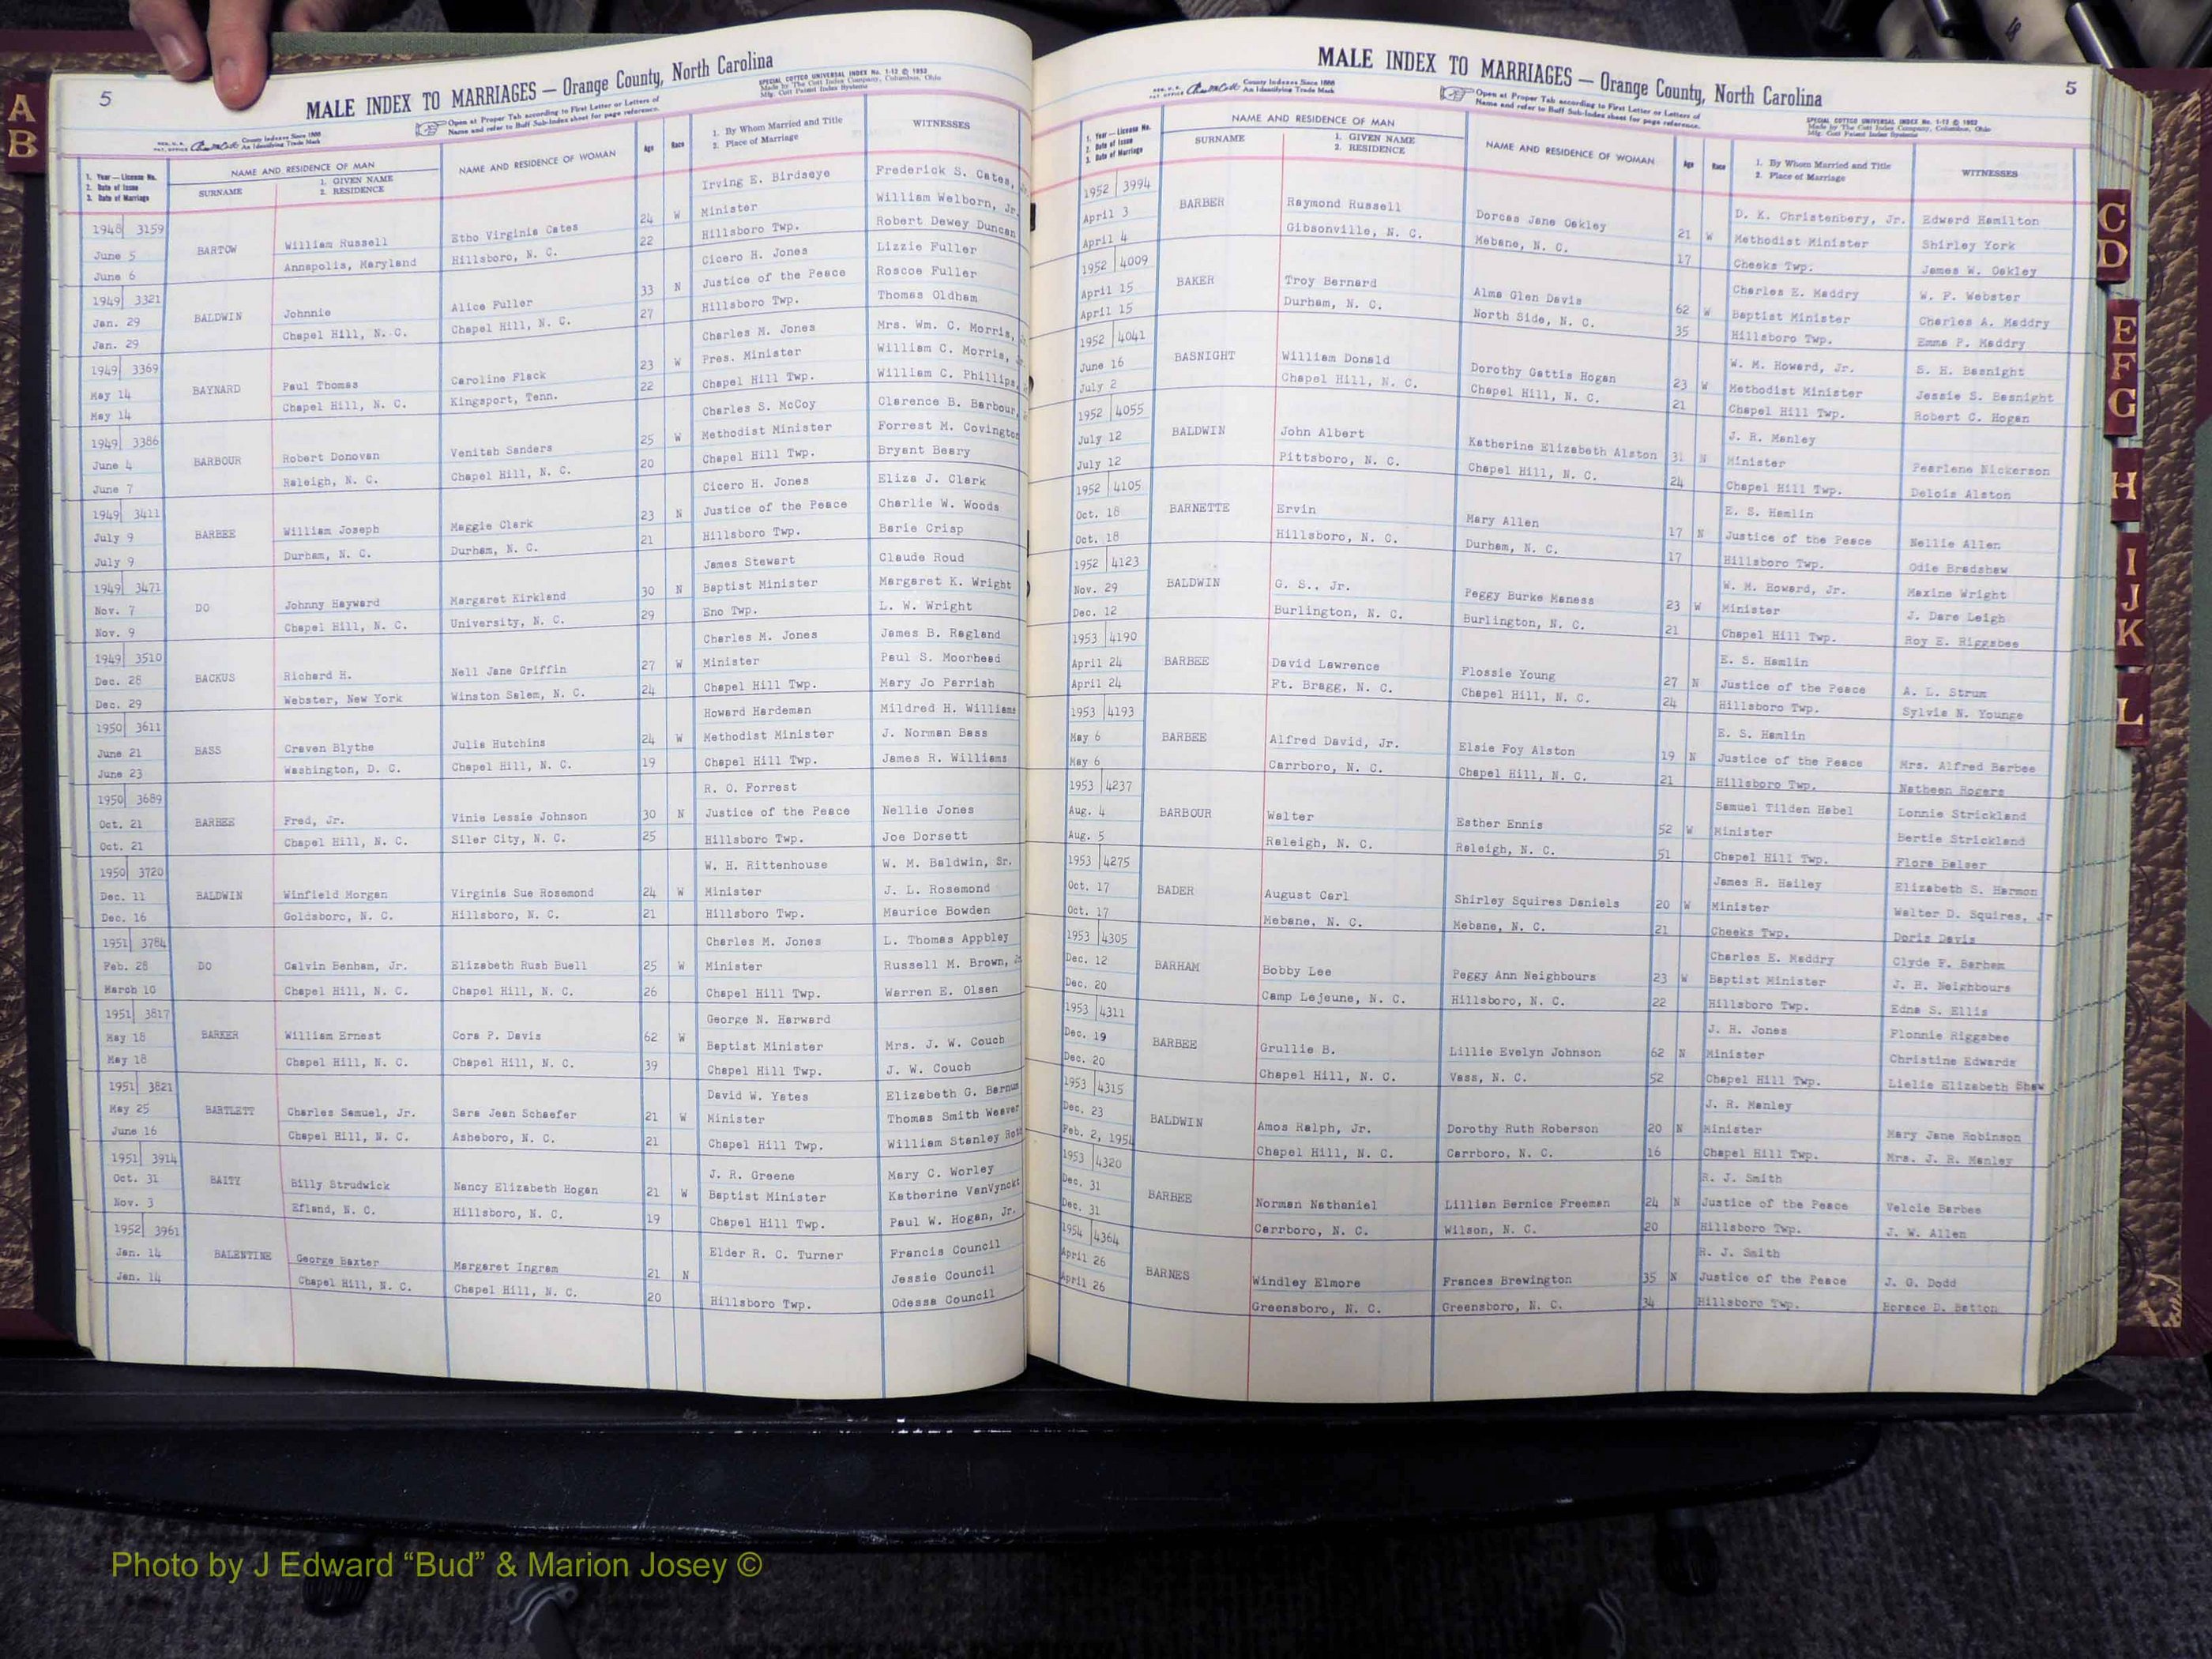 5
MALE INDEX TO MARRIAGES — Orange County, North Carolina
SPECIAL COTTCO UNIVERSAL INDEX No. 1-12 © 1952
Made by The Cott Index Company, Columbus, Ohio
Mfg. Cott Patent Index Systems
County Indexes Since 1888
An Identifying Trade Mark
Open at Proper Tab according to First Letter or Letters of
Name and refer to Buff Sub-Index sheet for page reference.
1. Year — License No.
2. Date of Issue
3. Date of Marriage
NAME AND RESIDENCE OF MAN
SURNAME
1. GIVEN NAME
2. RESIDENCE
NAME AND RESIDENCE OF WOMAN
Age
Race
1. By Whom Married and Title
2. Place of Marriage
WITNESSES
1948 3159 Irving E. Birdseye Frederick S. Cates, Jr.
June 5 BARTOW William Russell Etho Virginia Cates 24 W Minister William Welborn, Jr.
June 6 Annapolis, Maryland Hillsboro, N. C. 22 Hillsboro Twp. Robert Dewey Duncan
1949 3321 Cicero H. Jones Lizzie Fuller
Jan. 29 BALDWIN Johnnie Alice Fuller 33 N Justice of the Peace Roscoe Fuller
Jan. 29 Chapel Hill, N. C. Chapel Hill, N. C. 27 Hillsboro Twp. Thomas Oldham
1949 3369 Charles M. Jones Mrs. Wm. C. Morris,
May 14 BAYNARD Paul Thomas Caroline Flack 23 W Pres. Minister William C. Morris,
May 14 Chapel Hill, N. C. Kingsport, Tenn. 22 Chapel Hill Twp. William C. Phillips,
1949 3386 Charles S. McCoy Clarence B. Barbour,
June 4 BARBOUR Robert Donovan Venitah Sanders 25 W Methodist Minister Forrest M. Covington
June 7 Raleigh, N. C. Chapel Hill, N. C. 20 Chapel Hill Twp. Bryant Beary
1949 3411 Cicero H. Jones Eliza J. Clark
July 9 BARBEE William Joseph Maggie Clark 23 N Justice of the Peace Charlie W. Woods
July 9 Durham, N. C. Durham, N. C. 21 Hillsboro Twp. Barie Crisp
1949 3471 James Stewart Claude Roud
Nov. 7 DO Johnny Hayward Margaret Kirkland 30 N Baptist Minister Margaret K. Wright
Nov. 9 Chapel Hill, N. C. University, N. C. 29 Eno Twp. L. W. Wright
1949 3510 Charles M. Jones James B. Ragland
Dec. 28 BACKUS Richard H. Nell Jane Griffin 27 W Minister Paul S. Moorhead
Dec. 29 Webster, New York Winston Salem, N. C. 24 Chapel Hill Twp. Mary Jo Parrish
1950 3611 Howard Hardeman Mildred H. Williams
June 21 BASS Craven Blythe Julia Hutchins 24 W Methodist Minister J. Norman Bass
June 23 Washington, D. C. Chapel Hill, N. C. 19 Chapel Hill Twp. James R. Williams
1950 3689 R. O. Forrest
Oct. 21 BARBEE Fred, Jr. Vinie Lessie Johnson 30 N Justice of the Peace Nellie Jones
Oct. 21 Chapel Hill, N. C. Siler City, N. C. 25 Hillsboro Twp. Joe Dorsett
1950 3720 W. H. Rittenhouse W. M. Baldwin, Sr.
Dec. 11 BALDWIN Winfield Morgan Virginia Sue Rosemond 24 W Minister J. L. Rosemond
Dec. 16 Goldsboro, N. C. Hillsboro, N. C. 21 Hillsboro Twp. Maurice Bowden
1951 3784 Charles M. Jones L. Thomas Appbley
Feb. 28 DO Calvin Benham, Jr. Elizabeth Rush Buell 25 W Minister Russell M. Brown,
March 10 Chapel Hill, N. C. Chapel Hill, N. C. 26 Chapel Hill Twp. Warren E. Olsen
1951 3817 George N. Harward
May 18 BARKER William Ernest Cora P. Davis 62 W Baptist Minister Mrs. J. W. Couch
May 18 Chapel Hill, N. C. Chapel Hill, N. C. 39 Chapel Hill Twp. J. W. Couch
1951 3821 David W. Yates Elizabeth G. Barnum
May 25 BARTLETT Charles Samuel, Jr. Sara Jean Schaefer 21 W Minister Thomas Smith Weaver
June 16 Chapel Hill, N. C. Asheboro, N. C. 21 Chapel Hill Twp. William Stanley
1951 3914 J. R. Greene Mary C. Worley
Oct. 31 BAITY Billy Strudwick Nancy Elizabeth Hogan 21 W Baptist Minister Katherine VanVynckt
Nov. 3 Efland, N. C. Hillsboro, N. C. 19 Chapel Hill Twp. Paul W. Hogan, Jr.
1952 3961 Elder R. C. Turner Francis Council
Jan. 14 BALENTINE George Baxter Margaret Ingram 21 N Jessie Council
Jan. 14 Chapel Hill, N. C. Chapel Hill, N. C. 20 Hillsboro Twp. Odessa Council
MALE INDEX TO MARRIAGES — Orange County, North Carolina
5
County Indexes Since 1888
An Identifying Trade Mark
Open at Proper Tab according to First Letter or Letters of
Name and refer to Buff Sub-Index sheet for page reference.
SPECIAL COTTCO UNIVERSAL INDEX No. 1-12 © 1952
Made by The Cott Index Company, Columbus, Ohio
Mfg. Cott Patent Index Systems
1. Year — License No.
2. Date of Issue
3. Date of Marriage
NAME AND RESIDENCE OF MAN
SURNAME
1. GIVEN NAME
2. RESIDENCE
NAME AND RESIDENCE OF WOMAN
Age
Race
1. By Whom Married and Title
2. Place of Marriage
WITNESSES
1952 3994 D. K. Christenbery, Jr. Edward Hamilton
April 3 BARBER Raymond Russell Dorcas Jane Oakley 21 W Methodist Minister Shirley York
April 4 Gibsonville, N. C. Mebane, N. C. 17 Cheeks Twp. James W. Oakley
1952 4009 Charles E. Maddry W. F. Webster
April 15 BAKER Troy Bernard Alma Glen Davis 62 W Baptist Minister Charles A. Maddry
April 15 Durham, N. C. North Side, N. C. 35 Hillsboro Twp. Emma P. Maddry
1952 4041 W. M. Howard, Jr. S. H. Basnight
June 16 BASNIGHT William Donald Dorothy Gattis Hogan 23 W Methodist Minister Jessie S. Basnight
July 2 Chapel Hill, N. C. Chapel Hill, N. C. 21 Chapel Hill Twp. Robert C. Hogan
1952 4055 J. R. Manley
July 12 BALDWIN John Albert Katherine Elizabeth Alston 31 N Minister Pearlene Nickerson
July 12 Pittsboro, N. C. Chapel Hill, N. C. 24 Chapel Hill Twp. Delois Alston
1952 4105 E. S. Hamlin
Oct. 18 BARNETTE Ervin Mary Allen 17 N Justice of the Peace Nellie Allen
Oct. 18 Hillsboro, N. C. Durham, N. C. 17 Hillsboro Twp. Odie Bradshaw
1952 4123 W. M. Howard, Jr. Maxine Wright
Nov. 29 BALDWIN G. S., Jr. Peggy Burke Maness 23 W Minister J. Dare Leigh
Dec. 12 Burlington, N. C. Burlington, N. C. 21 Chapel Hill Twp. Roy E. Riggsbee
1953 4190 E. S. Hamlin
April 24 BARBEE David Lawrence Flossie Young 27 N Justice of the Peace A. L. Strum
April 24 Ft. Bragg, N. C. Chapel Hill, N. C. 24 Hillsboro Twp. Sylvia N. Younge
1953 4193 E. S. Hamlin
May 6 BARBEE Alfred David, Jr. Elsie Foy Alston 19 N Justice of the Peace Mrs. Alfred Barbee
May 6 Carrboro, N. C. Chapel Hill, N. C. 21 Hillsboro Twp. Natheen Rogers
1953 4237 Samuel Tilden Habel Lonnie Strickland
Aug. 4 BARBOUR Walter Esther Ennis 52 W Minister Bertie Strickland
Aug. 5 Raleigh, N. C. Raleigh, N. C. 51 Chapel Hill Twp. Flora Balser
1953 4275 James R. Hailey Elizabeth S. Harmon
Oct. 17 BADER August Carl Shirley Squires Daniels 20 W Minister Walter D. Squires, Jr
Oct. 17 Mebane, N. C. Mebane, N. C. 21 Cheeks Twp. Doris Davis
1953 4305 Charles E. Maddry Clyde F. Barham
Dec. 12 BARHAM Bobby Lee Peggy Ann Neighbours 23 W Baptist Minister J. H. Neighbours
Dec. 20 Camp Lejeune, N. C. Hillsboro, N. C. 22 Hillsboro Twp. Edna S. Ellis
1953 4311 J. H. Jones Flonnie Riggsbee
Dec. 19 BARBEE Grullie B. Lillie Evelyn Johnson 62 N Minister Christine Edwards
Dec. 20 Chapel Hill, N. C. Vass, N. C. 52 Chapel Hill Twp. Lielie Elizabeth Shaw
1953 4315 J. R. Manley
Dec. 23 BALDWIN Amos Ralph, Jr. Dorothy Ruth Roberson 20 N Minister Mary Jane Robinson
Feb. 2, 1954 Chapel Hill, N. C. Carrboro, N. C. 16 Chapel Hill Twp. Mrs. J. R. Manley
1953 4320 R. J. Smith
Dec. 31 BARBEE Norman Nathaniel Lillian Bernice Freeman 24 N Justice of the Peace Velcie Barbee
Dec. 31 Carrboro, N. C. Wilson, N. C. 20 Hillsboro Twp. J. W. Allen
1954 4364 R. J. Smith
April 26 BARNES Windley Elmore Frances Brewington 35 N Justice of the Peace J. G. Dodd
April 26 Greensboro, N. C. Greensboro, N. C. 34 Hillsboro Twp. Horace D. Batton
A
B
C
D
E
F
G
H
I
J
K
L
Photo by J Edward “Bud” & Marion Josey ©